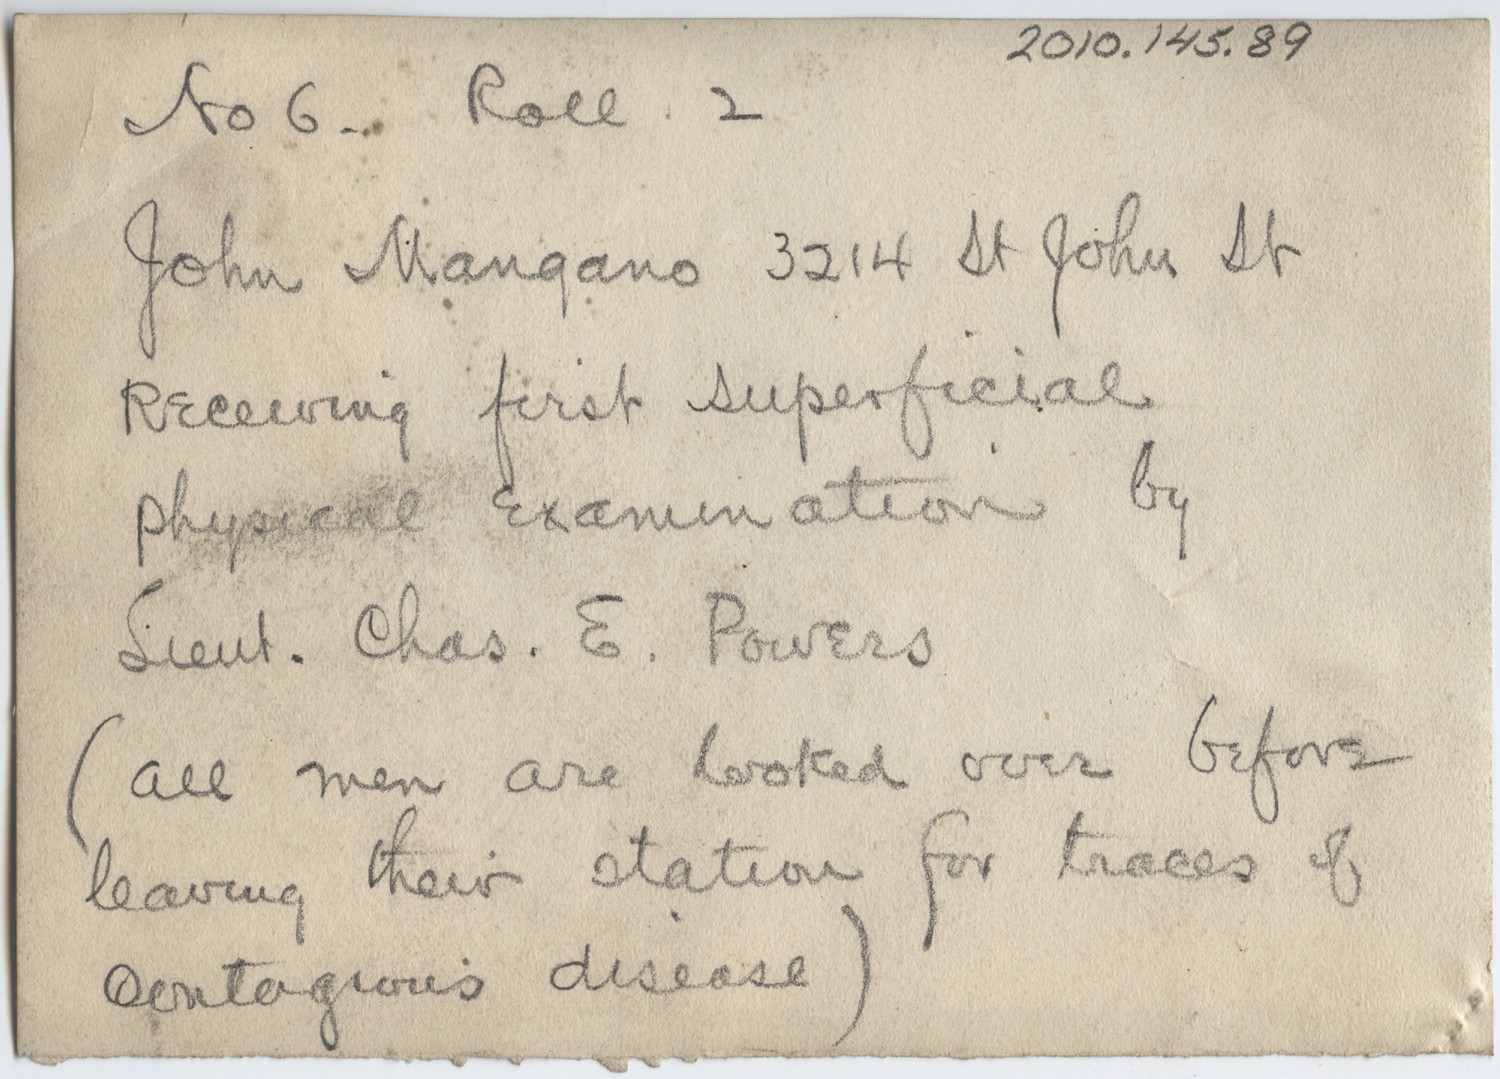 2010.145.89
No 6. Roll. 2
John Mangano 3214 St John St
Receiving first superficial
physical Examination by
Lieut. Chas. E. Powers
(all men are looked over before
leaving their station for traces of
contagious disease)